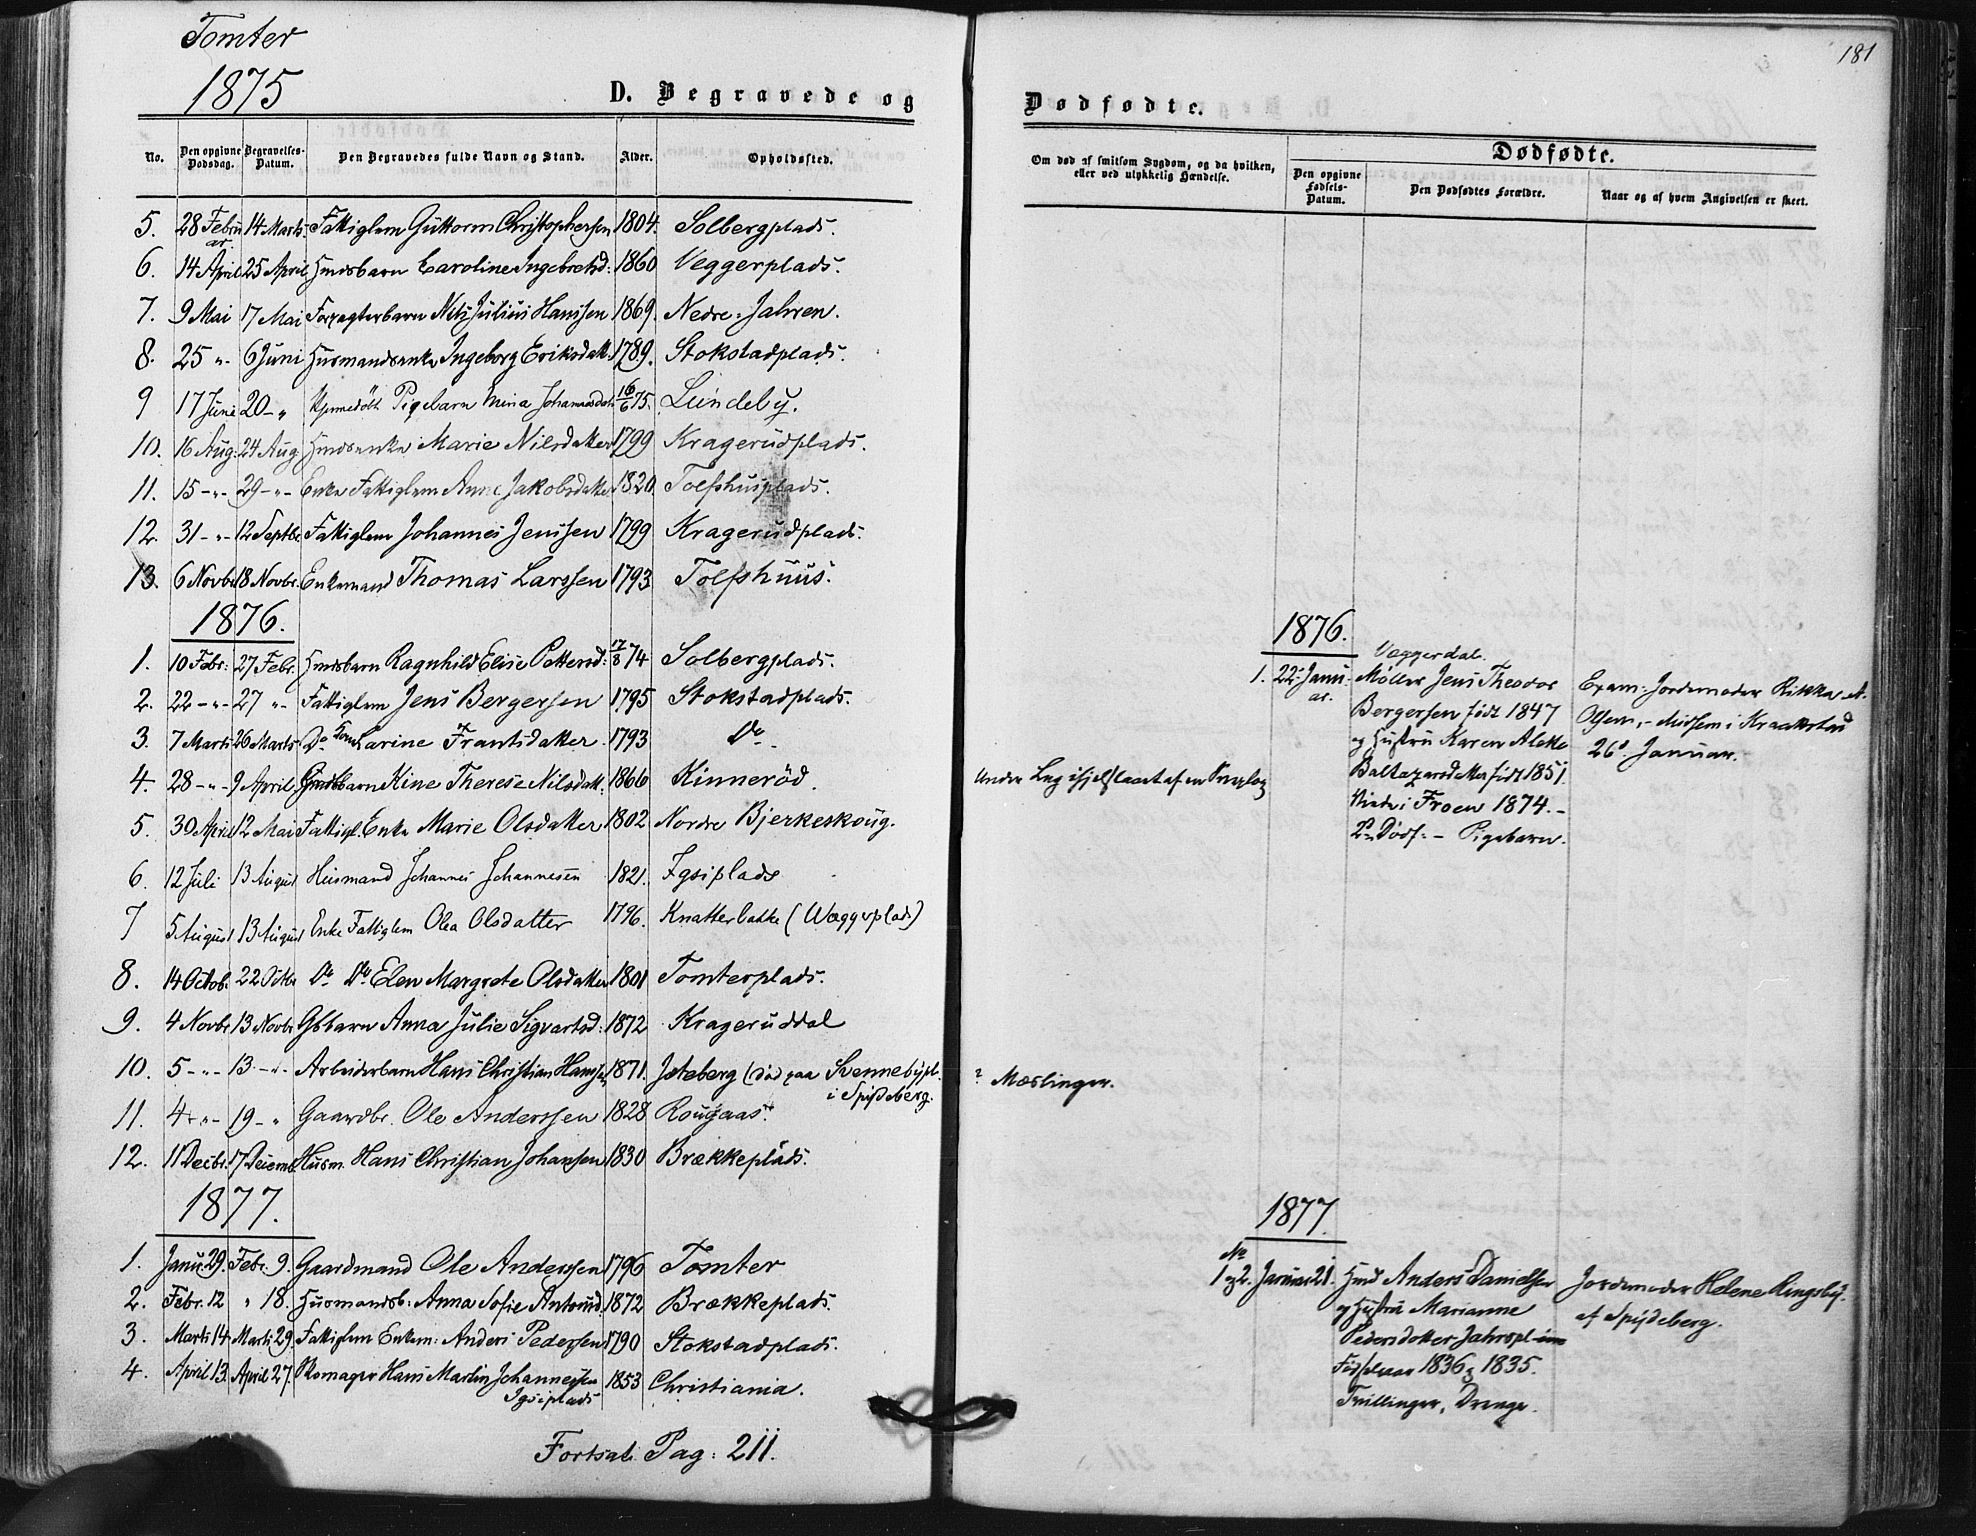 Tomter
1875
D. Begravede og
No. Den opgivne Dødsdag. Begravelses-Datum. Den Begravedes fulde Navn og Stand. Alder. Opholdssted.
5. 28 Februar. 14 Marts. Fattiglem Guttorm Christophersen 1804. Solbergplads.
6. 14 April 25 April Hmdsbarn Caroline Ingebretsd: 1860 Veggerplads.
7. 9 Mai 17 Mai Forpagterbarn Nils Julius Hanssen 1869. Nedre Jahren.
8. 25 " 6 Juni Husmandsenke Ingeborg Eriksdatt. 1789. Stokstadplads.
9 17 Juni 20 - " Hjemmedøbt Pigebarn Mina Johannesdat. 16/6 75. Lundeby.
10. 16 Aug. 24 Aug Hmdsenke Marie Nilsdatter 1799 Kragerudplads.
11. 15 - " - 29 - " - Enke Fattiglem Anne Jakobsdatter 1820 Tolfshusplads.
12. 31 - " - 12 Septbr. Fattiglem Johannes Jenssen 1799 Kragerudplads.
13. 6 Novbr. 18 Novbr. Enkemand Thomas Larssen 1793 Tolfshuus.
1876.
1. 10 Febr: 27 Febr. Hmdsbarn Ragnhild Elise Pettersd: 17/8 74 Solbergplads.
2. 22 - " - 27 " - Fattiglem Jens Bergersen 1795 Stokstadplads.
3. 7 Marts 26 Marts Do Kone Larine Frantsdatter. 1793 Do
4. 28 - " - 9 April Gmdsbarn Kine Therese Nilsdatt. 1866 Kinnerød.
5. 30 April 12 Mai Fattigl. Enke Marie Olsdatter 1802. Nordre Bjerkeskoug.
6. 12 Juli 13 August Husmand Johannes Johannesen 1821. Igsiplads
7 5 August 13 August Enke Fattiglem Olea Olsdatter 1796. Knatterbakke (Wæggerplads)
8. 14 Octob. 22 Octbr Do Do Elen Margrete Olsdatter 1801 Tomterplads.
9. 4 Novbr 13 Novbr Gbbarn Anna Julie Sigvartsd: 1872 Krageruddal
10. 5 - " - 13 - " - Arbeiderbarn Hans Christian Hanssen 1871. Isteberg (død paa Svennebypl. i Spydeberg.
11. 4 - " - 19 - " Gaardbr. Ole Anderssen 1828 Rougaas.
12. 11 Decbr. 17 Decemb. Husm. Hans Christian Johansen 1830 Brækkeplads.
1877.
1. Janu. 29. Febr. 9. Gaardmand Ole Anderssen 1796 Tomter
2. Febr. 12 " 18. Husmandsb: Anna Sofie Antonsd. 1872 Brækkeplads.
3. Marts 14 Marts 29. Fattiglem Enkem: Anders Pedersen 1790 Stokstadplads.
4. April 13. April 27. Skomager Hans Martin Johannessen 1853 Christiania.
Igsiplads
Fortsat. Pag: 211.
181
Dødfødte.
Om død af smitsom Sygdom, og da hvilken, eller ved ulykkelig Hændelse.
Dødfødte.
Den opgivne Fødsels-Datum. Den Dødfødtes Forældre. Naar og af hvem Angivelsen er skeet.
1876.
Væggerdal.
1. 22. Januar. Møller Jens Theodor
Bergersen født 1847
og Hustru Karen Alette
Baltazarsdatter født 1851.
Viede i Froen 1874. -
2n Dødf. - Pigebarn.
Exam: Jordemoder Rikke A.
Olsen, - Midsem i Kraakstad
26d Januar.
Under Leg ihjelslaaet af en
? Mæslinger.
1877.
No
1 og 2. Januar 21. Hmd Anders Danielsen
og Hustru Marianne
Pedersdatter Jahrspl
Fødselsaar 1836 og 1835.
Tvillinger, Drenge.
Jordemoder Helene Ringsby.
af Spydeberg.